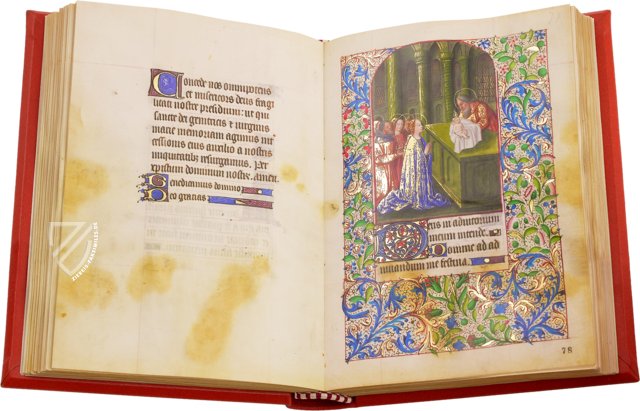 Concede nos omnipotens
et misericors deus fragi
litati nostre presidium: ut qui
sancte dei genitricis et virginis
marie memoriam agimus inter
cessionis eius auxilio a nostris
iniquitatibus resurgamus. Per
xpistum dominum nostrum. Amen.
Benedicamus domino
Deo gratias
Deus in adiutorium
meum intende.
Domine ad ad
iuvandum me festina.
78
ZIEREIS FACSIMILES.DE